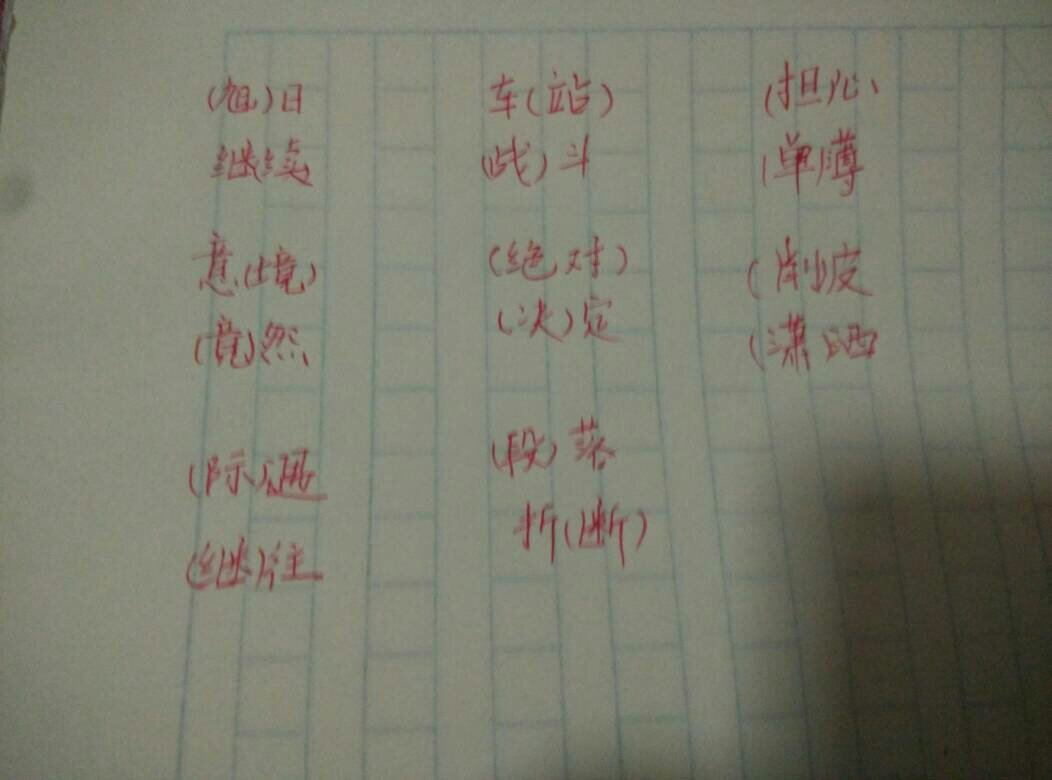 (旭)日 车(站) (担心
继续 (战)斗 (单)薄
意(境) (绝对) (削皮
(竟)然 (决)定 (潇)洒
(际)遇 (段)落
(继)往 折(断)